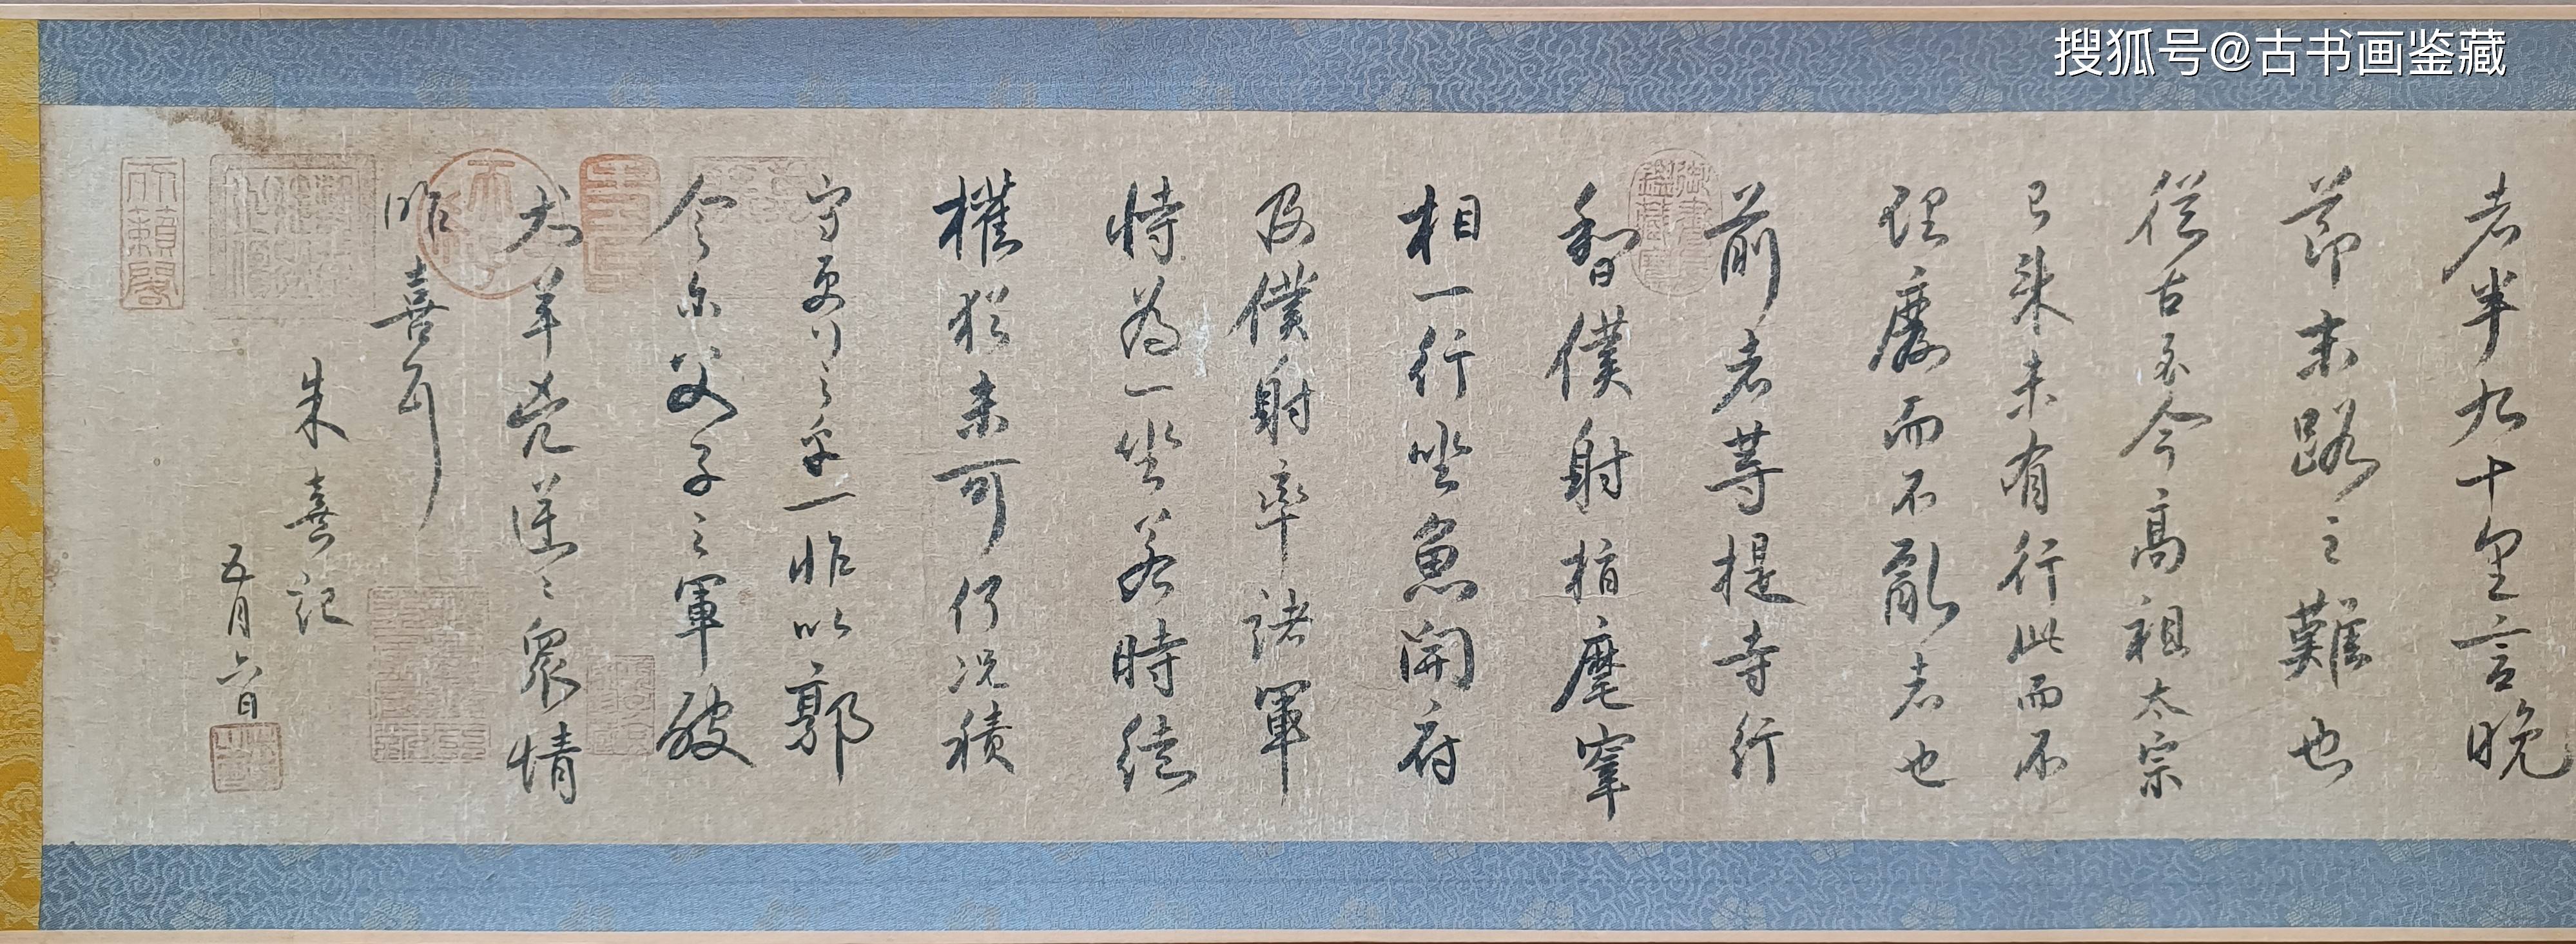 搜狐号@古书画鉴藏
者半九十里言晚
節末路之難也
從古至今高祖太宗
已來未有行此而不
理廢而不亂者也
前者菩提寺行
香僕射指麾宰
相一行坐魚開府
及僕射率諸軍
將為一坐若時從
權猶未可何況積
習更行之乎一昨以郭
令公父子之軍破
犬羊兇逆之眾情
昨喜
朱熹記
五月六日
天籟閣